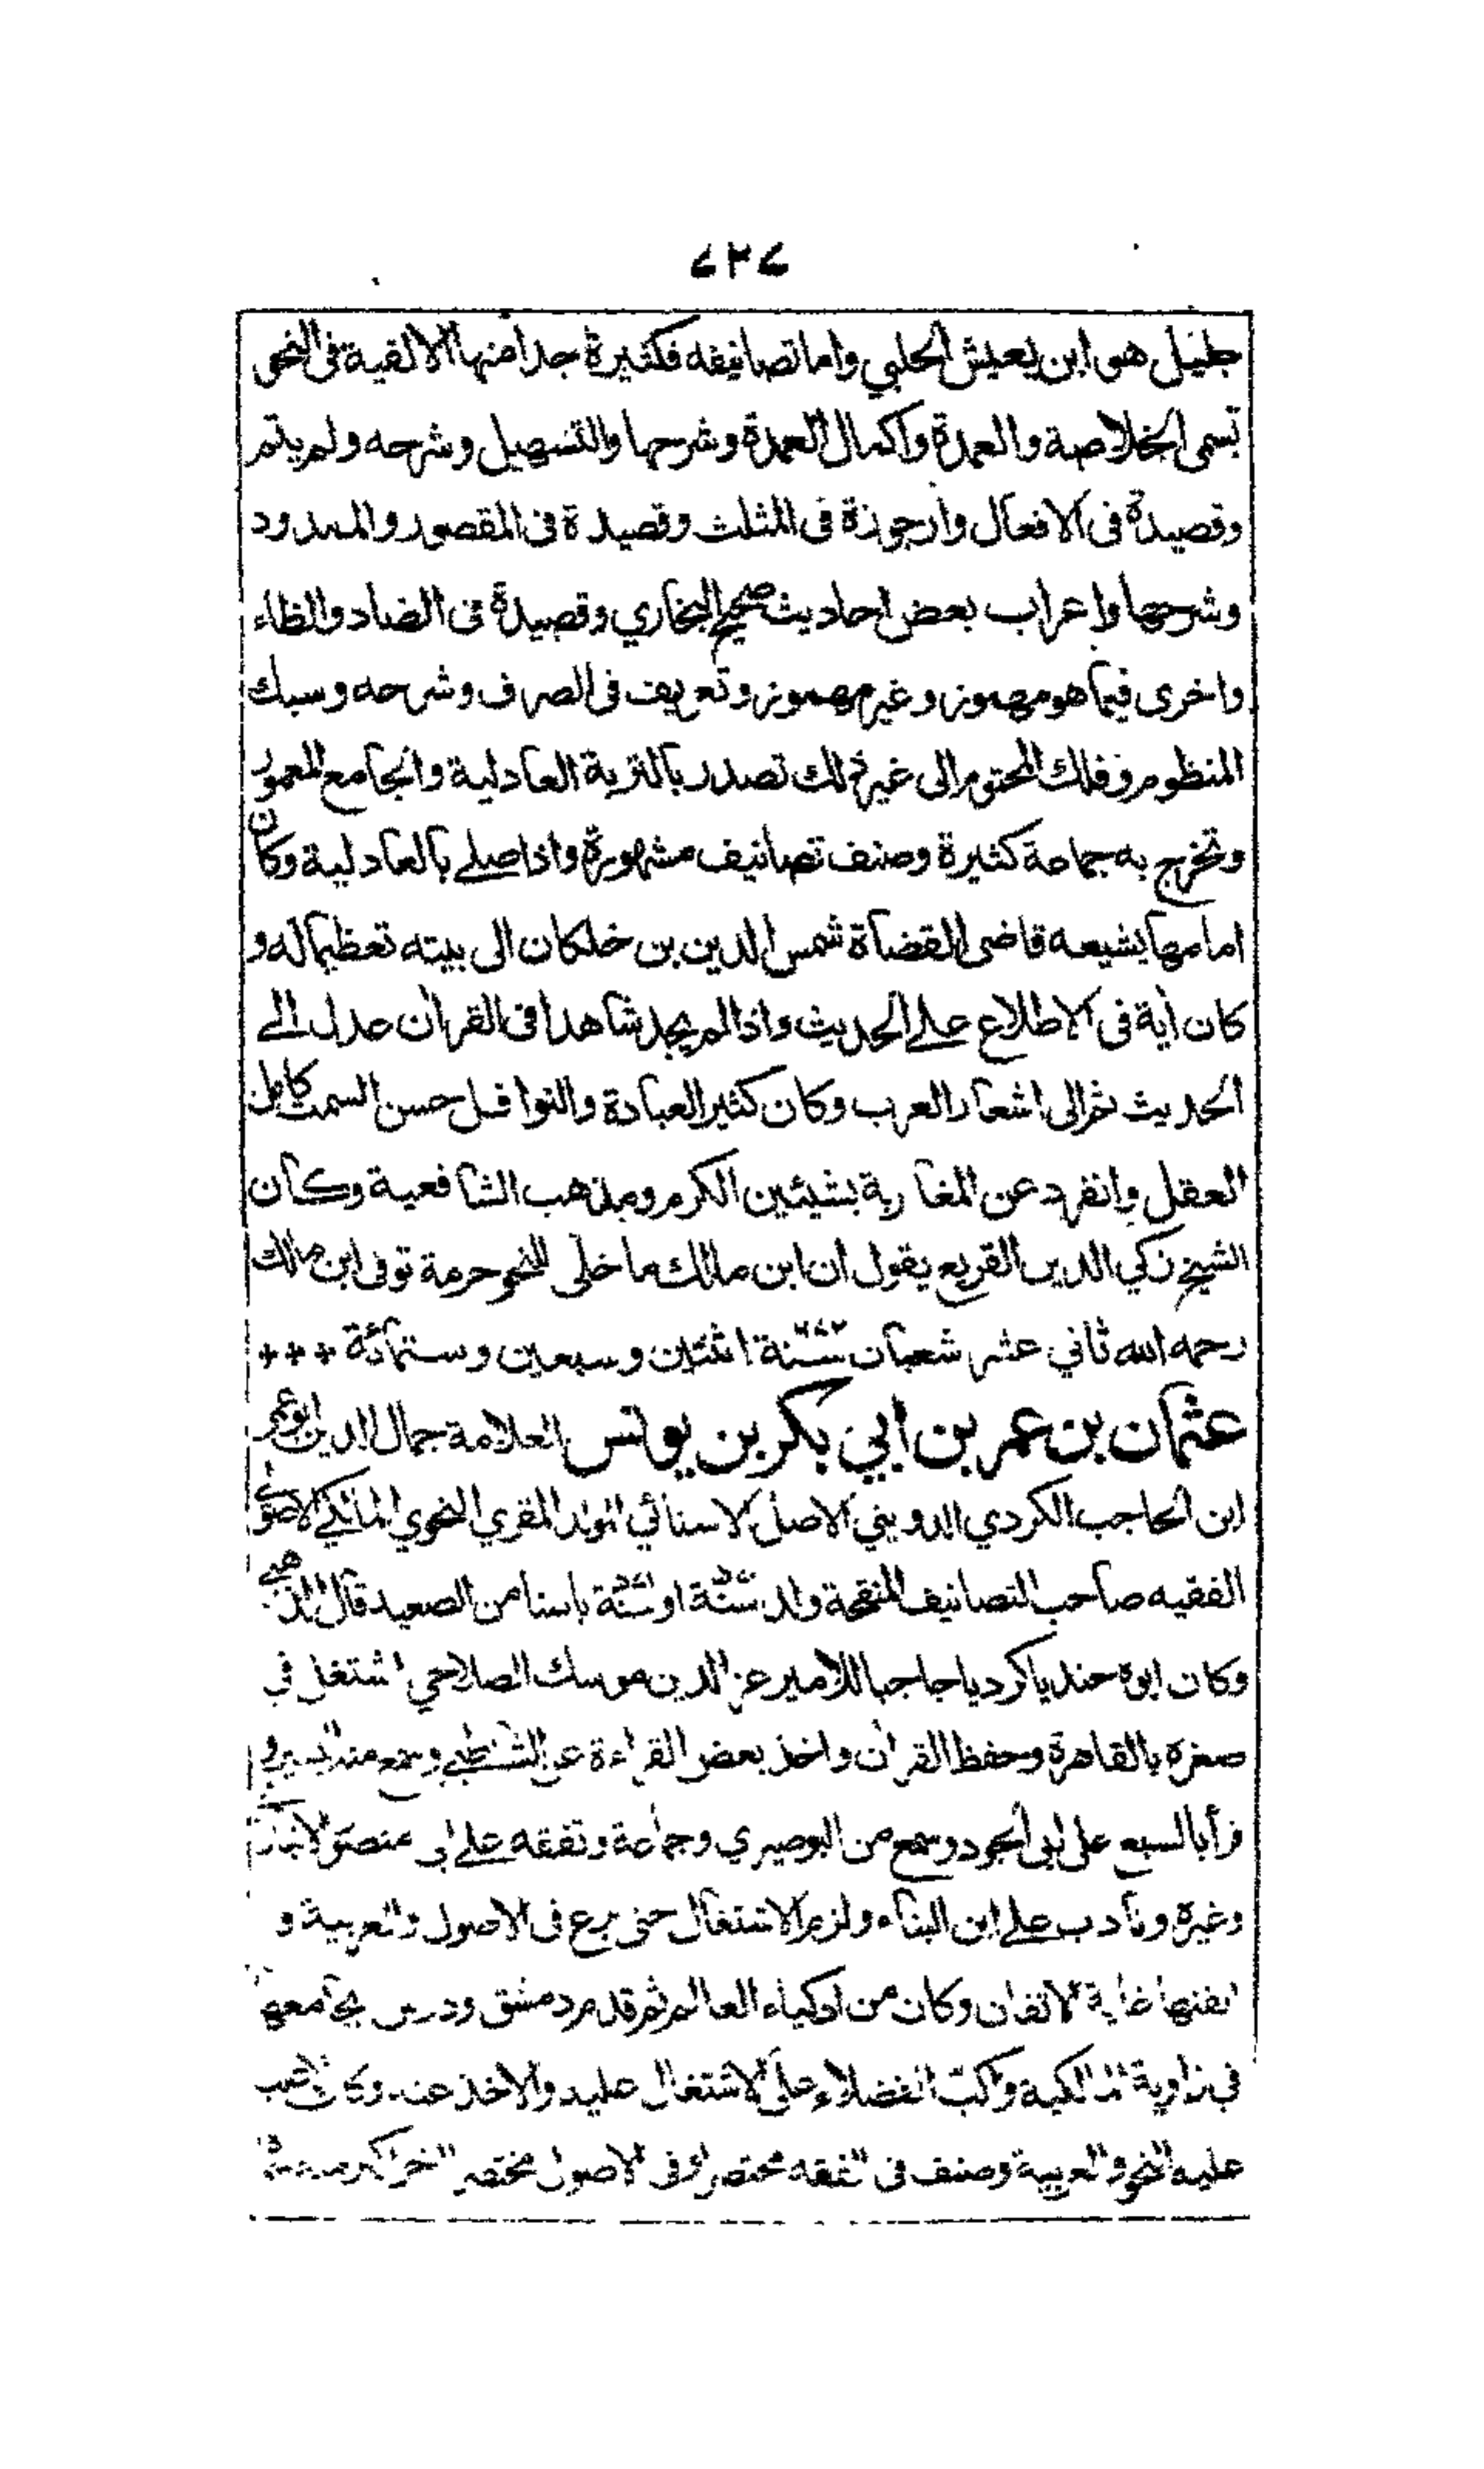 ٧٢٧
جليل هو ابن يعيش الحلبي واما تصانيفه فكثيرة جدا منها الالفية فى النحو
تسمى الخلاصة والعمدة واكمال العمدة وشرحها والتسهيل وشرحه ولم يتم
وقصيدة فى الافعال وارجوزة فى المثلث وقصيدة فى المقصور والممدود
وشرحها واعراب بعض احاديث صحيح البخاري وقصيدة فى الضاد والظاء
واخرى فيما هو مهموز وغير مهموز وتعريف فى الصرف وشرحه وسبك
المنظوم وفلك المختوم الى غير ذلك تصدر بالتربة العادلية والجامع المعمور
وتخرج به جماعة كثيرة وصنف تصانيف مشهورة واذا صلے بالعادلية وكان
امامها يشيعه قاضى القضاة شمس الدين بن خلكان الى بيته تعظيما له و
كان أية فى الاطلاع علے الحديث واذا لم يجد شاهدا فى القرأن عدل الے
الحديث ثم الى اشعار العرب وكان كثير العبادة والنوافل حسن السمت كامل
العقل وانفرد عن المغاربة بشيئين الكرم ومذهب الشافعية وكان
الشيخ زكي الدين القريع يقول ان ابن مالك ما خلّى للنحو حرمة توفى ابن مالك
رحمه الله ثاني عشر شعبان سنة ٦٧٢ اثنتين وسبعين وستمائة + + +
عثمان بن عمر بن ابي بكر بن يونس العلامة جمال الدين ابو عمر
ابن الحاجب الكردي الدويني الاصل الاسنائي المولد المقري النحوي المالكي الاصولے
الفقيه صاحب التصانيف المنقحة ولد سنة او سنة باسنا من الصعيد قال الذهبے
وكان ابوه جنديا كرديا حاجبا للامير عز الدين موسك الصلاحي اشتغل في
صغره بالقاهرة وحفظ القرأن واخذ بعض القراءة عن الشاطبي وسمع منه اليسير و
قرأ بالسبع على ابى الجود وسمع من البوصيري وجماعة وتفقه علے ابى منصور الابياري
وغيره وتأدب علے ابن البناء ولزم الاشتغال حتى برع فى الاصول والعربية و
اتقنها غاية الاتقان وكان من اذكياء العالم ثم قدم دمشق ودرس بجامعها
فى زاوية المالكية واكب الفضلاء على الاشتغال عليه والاخذ عنه وكان الاغلب
عليه النحو والعربية وصنف فى الفقه مختصرا وفى الاصول مختصرا اخر اكبر منه